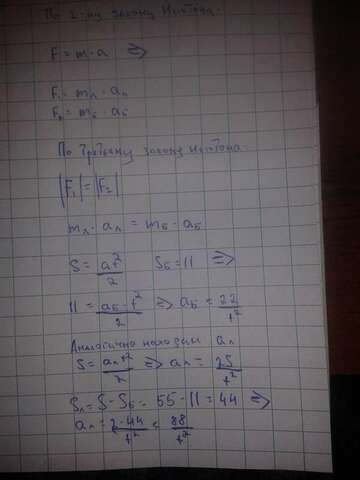 По 2-му закону Ньютона.
F = m · a ⇒
F₁ = mл · aл
F₂ = mб · aб
По третьему закону Ньютона
|F₁| = |F₂|
mл · aл = mб · aб
S = at²/2 Sб = 11 ⇒
11 = aб · t²/2 ⇒ aб = 22/t²
Аналогично находим aл
S = aл t²/2 ⇒ aл = 2S/t²
Sл = S - Sб = 55 - 11 = 44 ⇒
aл = 2 · 44/t² = 88/t²